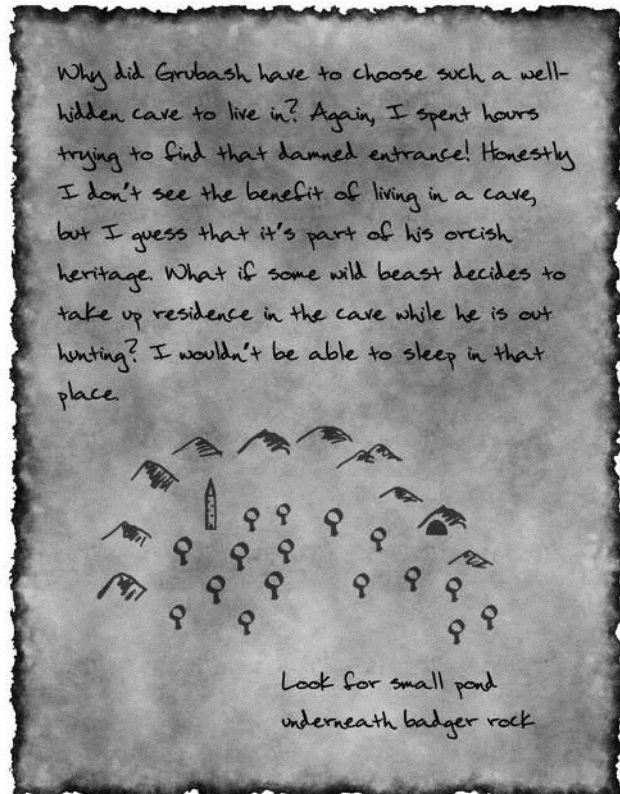 Why did Grubash have to choose such a well-
hidden cave to live in? Again, I spent hours
trying to find that damned entrance! Honestly
I don't see the benefit of living in a cave,
but I guess that it's part of his orcish
heritage. What if some wild beast decides to
take up residence in the cave while he is out
hunting? I wouldn't be able to sleep in that
place.
Look for small pond
underneath badger rock